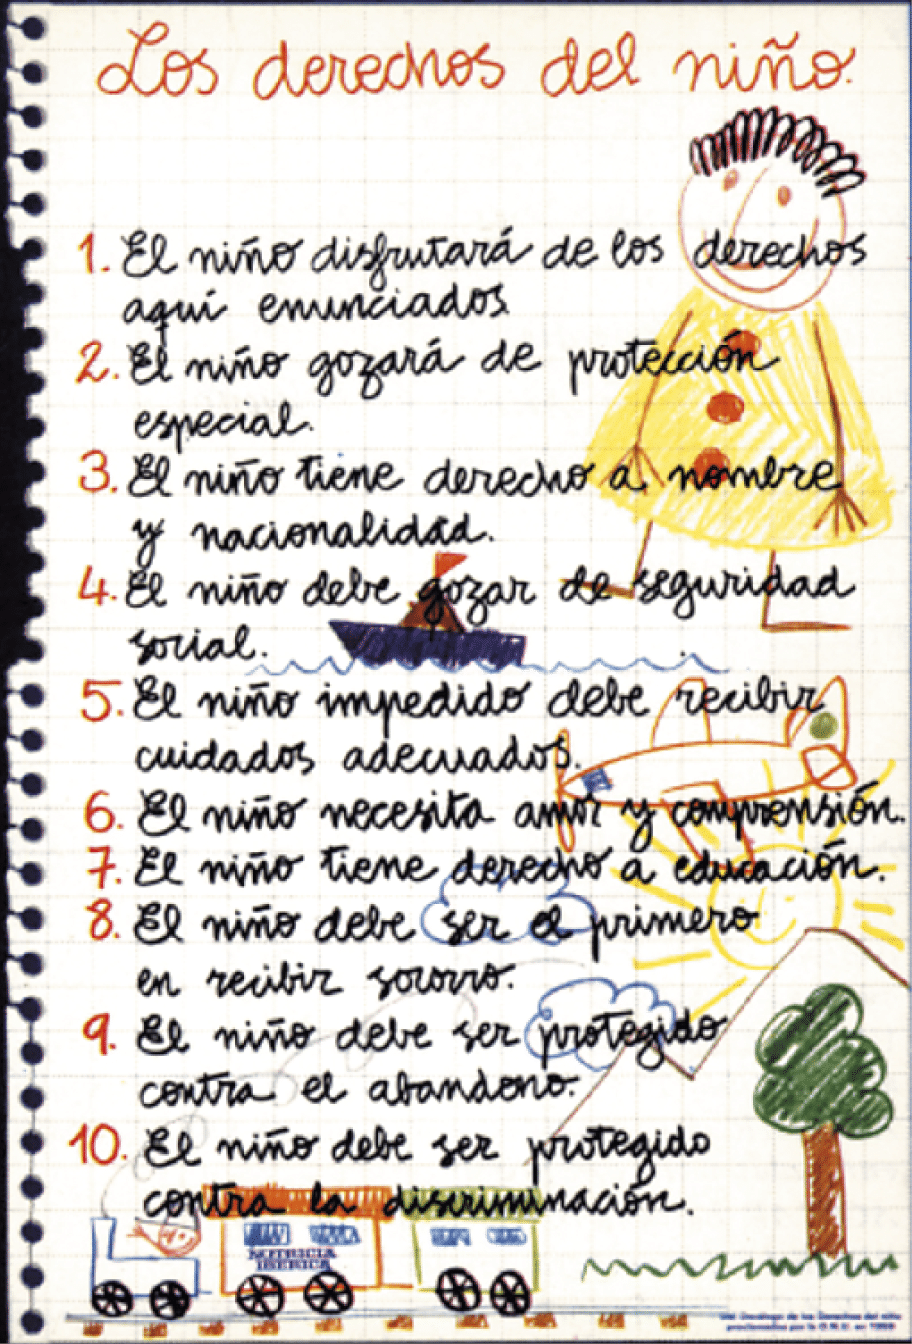 Los derechos del niño.
1. El niño disfrutará de los derechos
aquí enunciados.
2. El niño gozará de protección
especial.
3. El niño tiene derecho a nombre
y nacionalidad.
4. El niño debe gozar de seguridad
social.
5. El niño impedido debe recibir
cuidados adecuados.
6. El niño necesita amor y comprensión.
7. El niño tiene derecho a educación.
8. El niño debe ser el primero
en recibir socorro.
9. El niño debe ser protegido
contra el abandono.
10. El niño debe ser protegido
contra la discriminación.
NUTRICIA
IBERICA
Decálogo de los Derechos del niño
proclamados por la O.N.U. en 1959